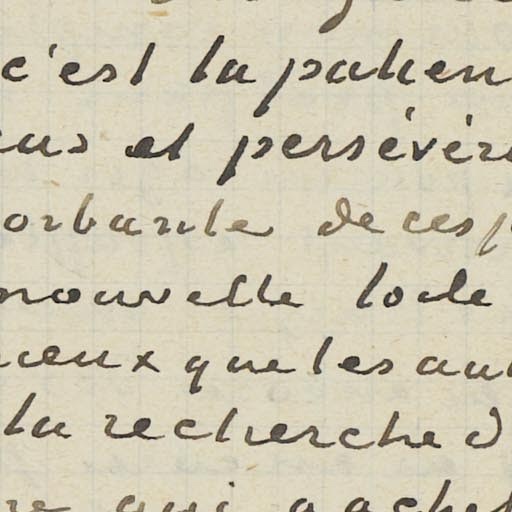 c'est la patien
eux et persévér
orbante de ces p
nouvelle toile
ceux que les au
la recherche d
re qui